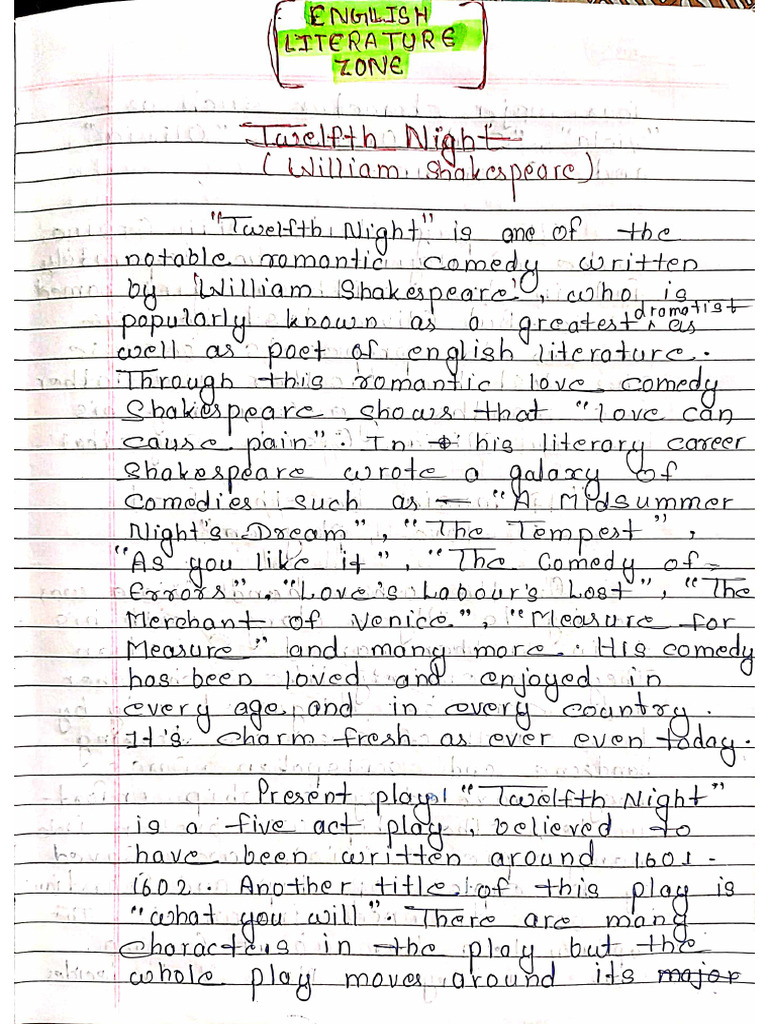 ENGLISH
LITERATURE
ZONE
Twelfth Night
(William Shakespeare)
"Twelfth Night" is one of the
notable romantic comedy written
by 'William Shakespeare', who is
popularly known as a greatest dramatist as
well as poet of english literature.
Through this romantic love comedy
Shakespeare shows that "love can
cause pain". In his literary career
Shakespeare wrote a galaxy of
Comedies such as — "A Midsummer
Night's Dream", "The Tempest",
"As you like it", "The Comedy of
Errors", "Love's Labour's Lost", "The
Merchant of Venice", "Measure for
Measure" and many more. His comedy
has been loved and enjoyed in
every age and in every country.
It's charm fresh as ever even today.
Present play "Twelfth Night"
is a five act play, believed to
have been written around 1601-
1602. Another title of this play is
"what you will". There are many
characters in the play but the
whole play moves around its major